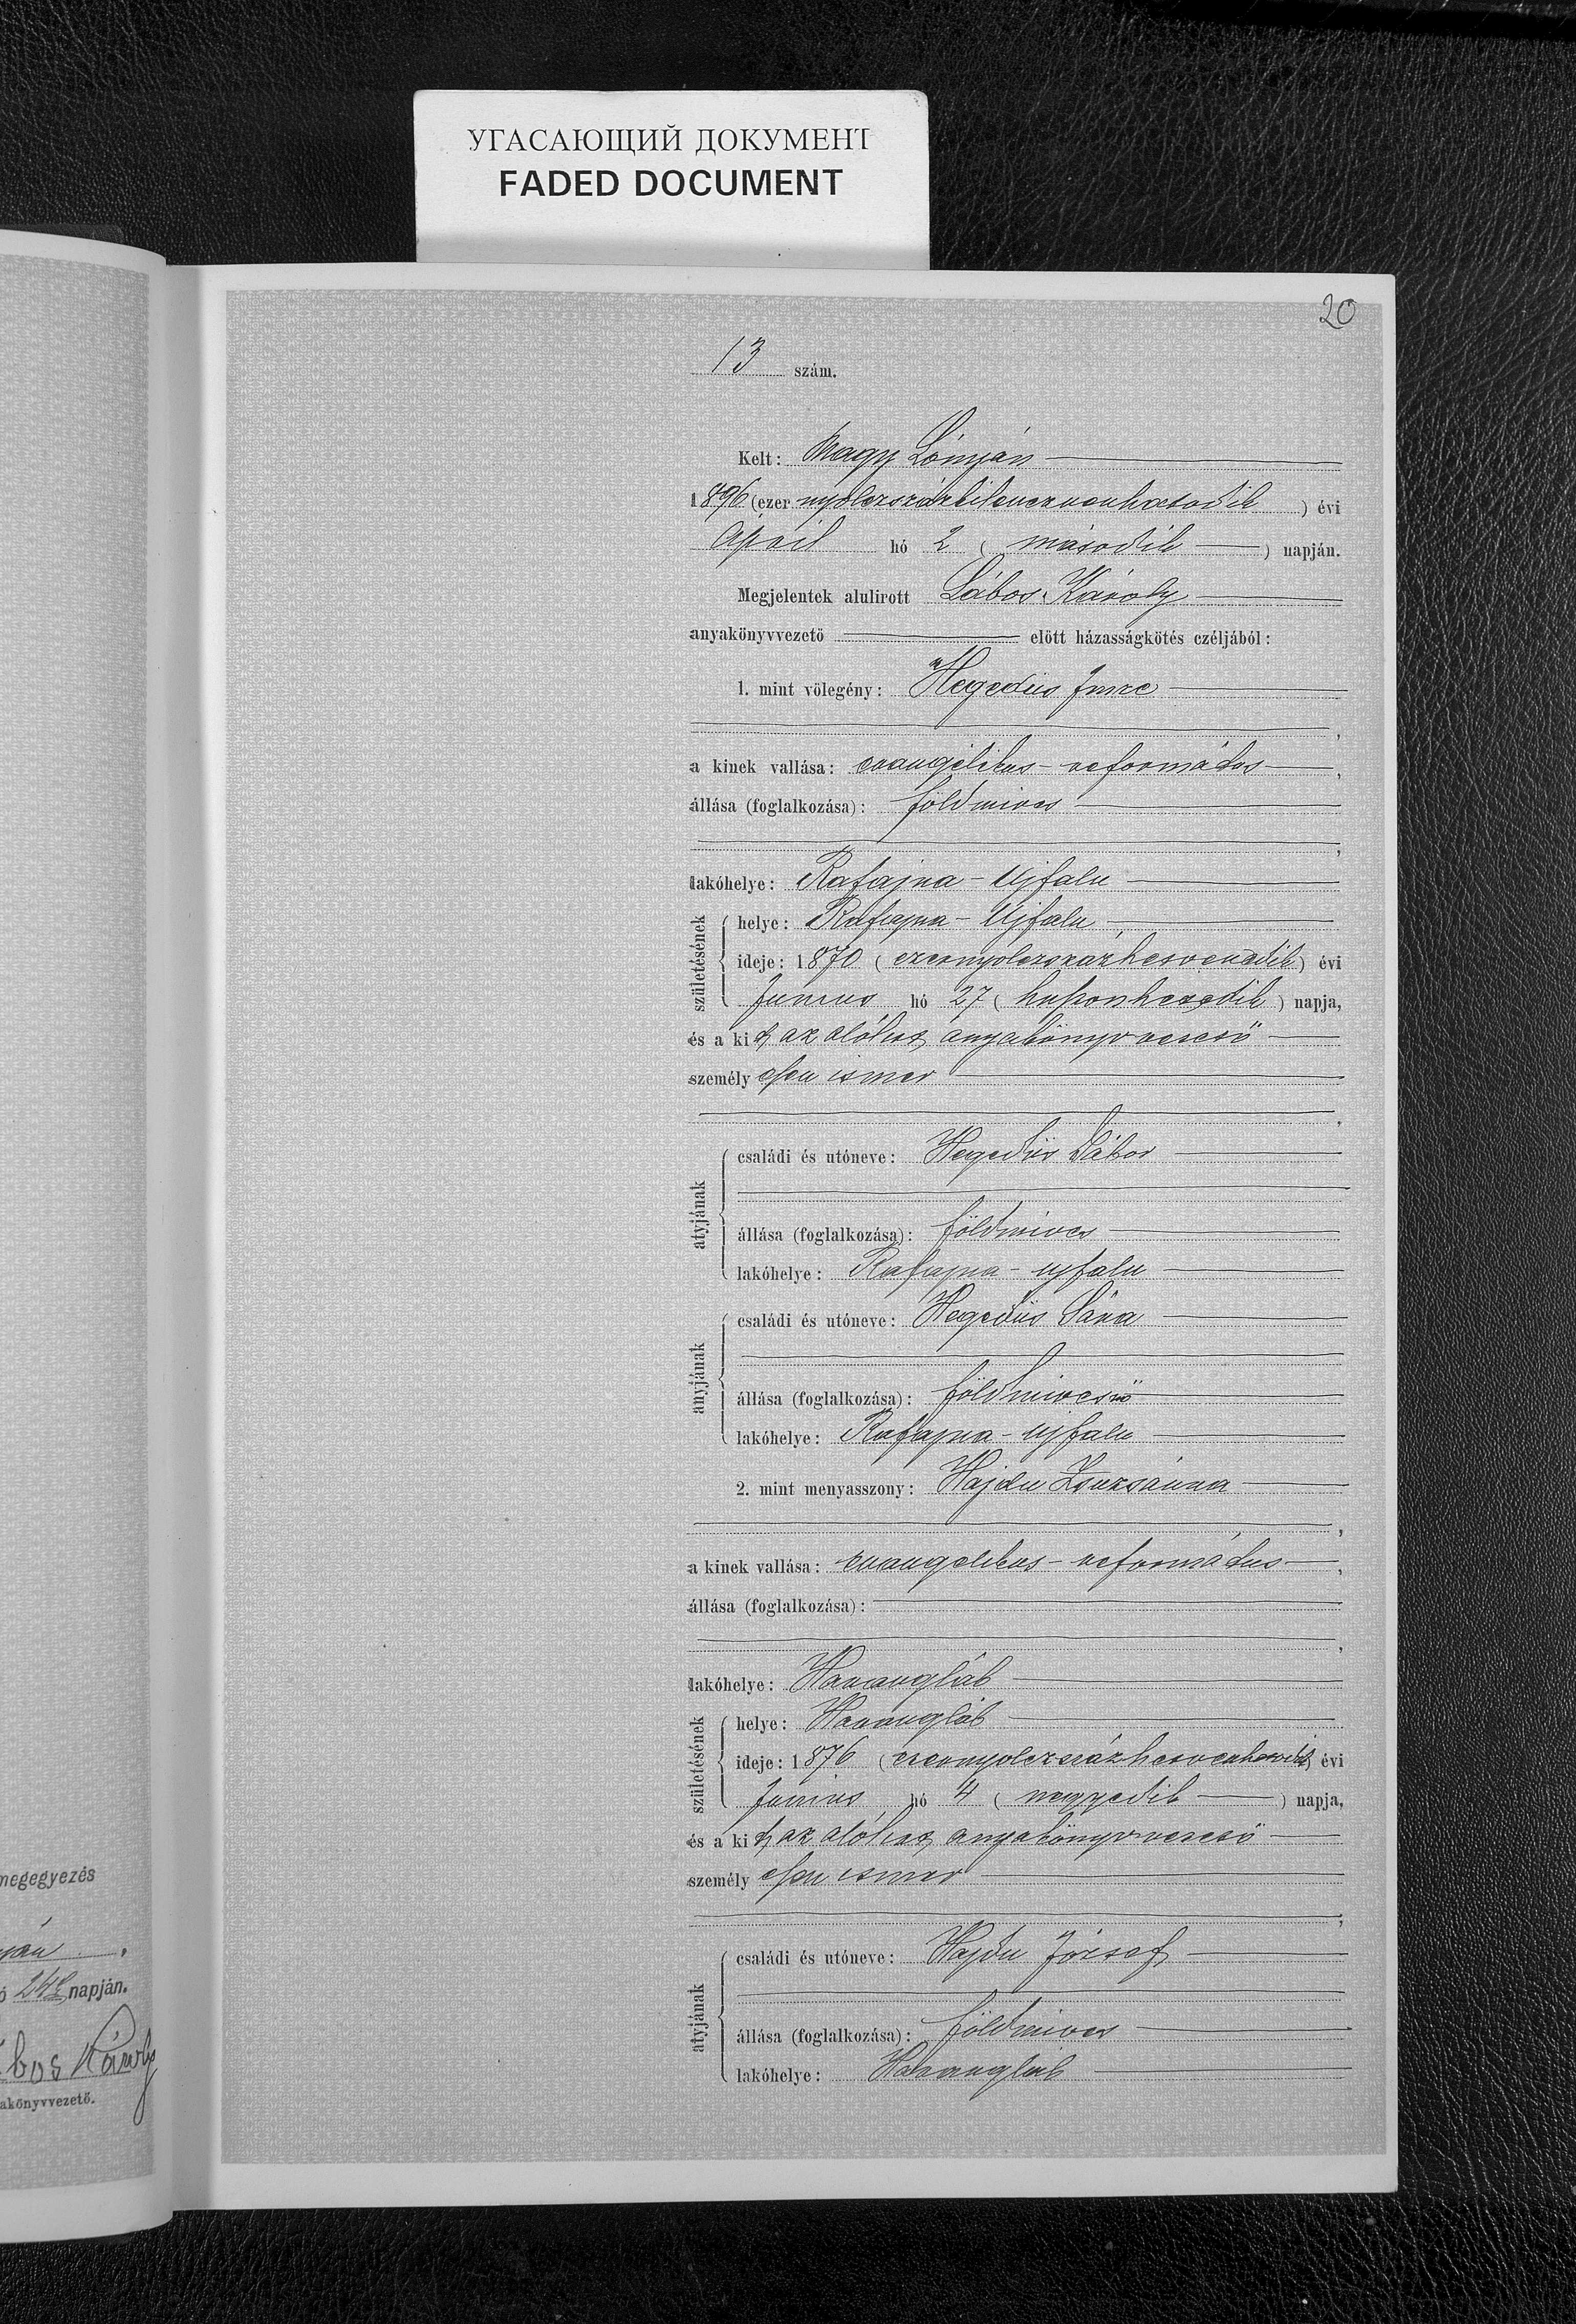 УГАСАЮЩИЙ ДОКУМЕНТ
FADED DOCUMENT
20
13 szám.
Kelt: Nagy Lónyán
1896 (ezer nyolczszázkilenczvenhatodik) évi
April hó 2 (második) napján.
Megjelentek alulirott Lábos Károly
anyakönyvvezető előtt házasságkötés czéljából:
1. mint vőlegény: Hegedüs Imre
a kinek vallása: evangélikus-református,
állása (foglalkozása): földmives
lakóhelye: Rafajna-Ujfalu
születésének
helye: Rafajna-Ujfalu,
ideje: 1870 (ezernyolczszázhetvenedik) évi
Junius hó 27 (huszonhetedik) napja,
és a kit az alólirt anyakönyvvezető
személyesen ismer
atyjának
családi és utóneve: Hegedüs Gábor
állása (foglalkozása): földmives
lakóhelye: Rafajna-ujfalu
anyjának
családi és utóneve: Hegedüs Sára
állása (foglalkozása): földmivesnő
lakóhelye: Rafajna-ujfalu
2. mint menyasszony: Hajdu Zsuzsánna
a kinek vallása: evangelikus-református,
állása (foglalkozása):
lakóhelye: Harangláb
születésének
helye: Harangláb
ideje: 1876 (ezernyolczszázhetvenhatodik) évi
Junius hó 4 (negyedik) napja,
és a kit az alólirt anyakönyvvezető
személyesen ismer
atyjának
családi és utóneve: Hajdu József
állása (foglalkozása): földmives
lakóhelye: Harangláb
megegyezés
24 napján.
bos Károly
akönyvvezető.